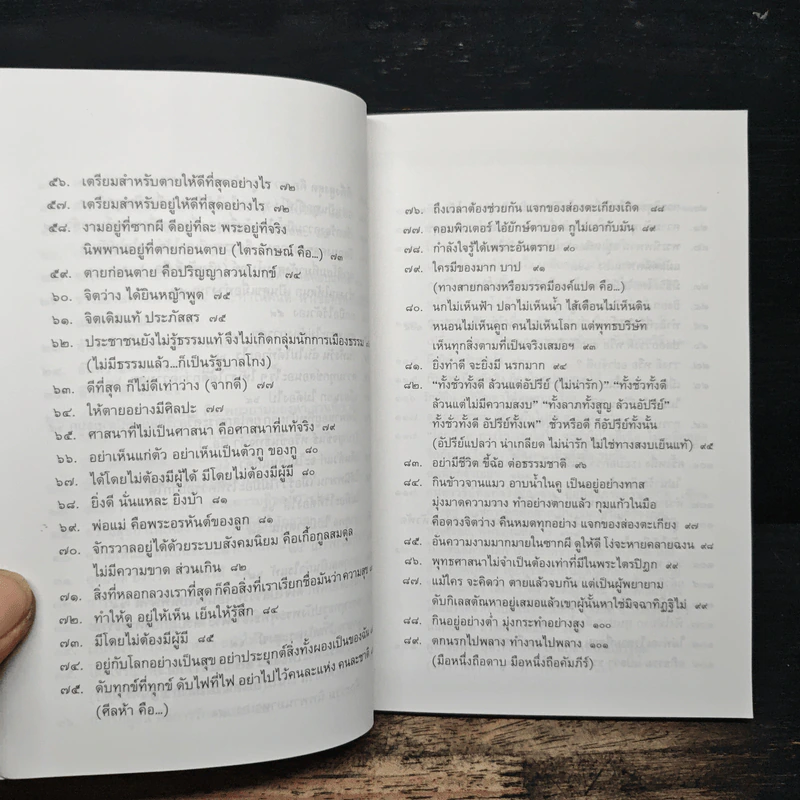 ๕๖. เตรียมสำหรับตายให้ดีที่สุดอย่างไร ๗๒
๕๗. เตรียมสำหรับอยู่ให้ดีที่สุดอย่างไร ๗๒
๕๘. งามอยู่ที่ซากผี ดีอยู่ที่ละ พระอยู่ที่จริง
นิพพานอยู่ที่ตายก่อนตาย (ไตรลักษณ์ คือ...) ๗๓
๕๙. ตายก่อนตาย คือปริญญาสวนโมกข์ ๗๔
๖๐. จิตว่าง ได้ยินหญ้าพูด ๗๕
๖๑. จิตเดิมแท้ ประภัสสร ๗๕
๖๒. ประชาชนยังไม่รู้ธรรมแท้ จึงไม่เกิดกลุ่มนักการเมืองธรรม
(ไม่มีธรรมแล้ว...ก็เป็นรัฐบาลโกง)
๖๓. ดีที่สุด ก็ไม่ดีเท่าว่าง (จากดี) ๗๗
๖๔. ให้ตายอย่างมีศิลปะ ๗๗
๖๕. ศาสนาที่ไม่เป็นศาสนา คือศาสนาที่แท้จริง ๗๙
๖๖. อย่าเห็นแก่ตัว อย่าเห็นเป็นตัวกู ของกู ๘๐
๖๗. ได้โดยไม่ต้องมีผู้ได้ มีโดยไม่ต้องมีผู้มี ๘๐
๖๘. ยิ่งดี นั่นแหละ ยิ่งบ้า ๘๑
๖๙. พ่อแม่ คือพระอรหันต์ของลูก ๘๑
๗๐. จักรวาลอยู่ได้ด้วยระบบสังคมนิยม คือเกื้อกูลสมดุล
ไม่มีความขาด ส่วนเกิน ๘๒
๗๑. สิ่งที่หลอกลวงเราที่สุด ก็คือสิ่งที่เราเรียกชื่อมันว่าความสุข
๗๒. ทำให้ดู อยู่ให้เห็น เย็นให้รู้สึก ๘๔
๗๓. มีโดยไม่ต้องมีผู้มี ๘๕
๗๔. อยู่กับโลกอย่างเป็นสุข อย่าประยุกต์สิ่งทั้งผองเป็นของฉัน
๗๕. ดับทุกข์ที่ทุกข์ ดับไฟที่ไฟ อย่าไปไว้คนละแห่ง คนละชาติ
(ศีลห้า คือ...)
๗๖. ถึงเวลาต้องช่วยกัน แจกของส่องตะเกียงเถิด ๘๘
๗๗. คอมพิวเตอร์ ไอ้ยักษ์ตาบอด กูไม่เอากับมัน ๘๙
๗๘. กำลังใจรู้ได้เพราะอันตราย ๙๐
๗๙. ใครมีของมาก บาป ๙๑
(ทางสายกลางหรือมรรคมีองค์แปด คือ...)
๘๐. นกไม่เห็นฟ้า ปลาไม่เห็นน้ำ ไส้เดือนไม่เห็นดิน
หนอนไม่เห็นคูถ คนไม่เห็นโลก แต่พุทธบริษัท
เห็นทุกสิ่งตามที่เป็นจริงเสมอฯ ๙๓
๘๑. ยิ่งทำดี จะยิ่งมี นรกมาก ๙๔
๘๒. “ทั้งชั่วทั้งดี ล้วนแต่อัปรีย์ (ไม่น่ารัก)” “ทั้งชั่วทั้งดี
ล้วนแต่ไม่มีความสงบ” “ทั้งลาภทั้งสูญ ล้วนอัปรีย์”
ทั้งชั่วทั้งดี อัปรีย์ทั้งเพ” ชั่วหรือดี ก็อัปรีย์ทั้งนั้น
(อัปรีย์แปลว่า น่าเกลียด ไม่น่ารัก ไม่ใช่ทางสงบเย็นแท้) ๙๕
๘๓. อย่ามีชีวิต ขี้ฉ้อ ต่อธรรมชาติ ๙๖
๘๔. กินข้าวจานแมว อาบน้ำในคู เป็นอยู่อย่างทาส
มุ่งมาดความว่าง ทำอย่างตายแล้ว กุมแก้วในมือ
คือดวงจิตว่าง คืนหมดทุกอย่าง แจกของส่องตะเกียง ๙๗
๘๕. อันความงามมากมายในซากผี ดูให้ดี โง่จะหายคลายฉงน ๙๘
๘๖. พุทธศาสนาไม่จำเป็นต้องเท่าที่มีในพระไตรปิฎก ๙๘
๘๗. แม้ใคร จะคิดว่า ตายแล้วจบกัน แต่เป็นผู้พยายาม
ดับกิเลสตัณหาอยู่เสมอแล้วเขาผู้นั้นหาใช่มิจฉาทิฏฐิไม่ ๙๙
๘๘. กินอยู่อย่างต่ำ มุ่งกระทำอย่างสูง ๑๐๐
๘๙. ตกนรกไปพลาง ทำงานไปพลาง ๑๐๑
(มือหนึ่งถือดาบ มือหนึ่งถือคัมภีร์)